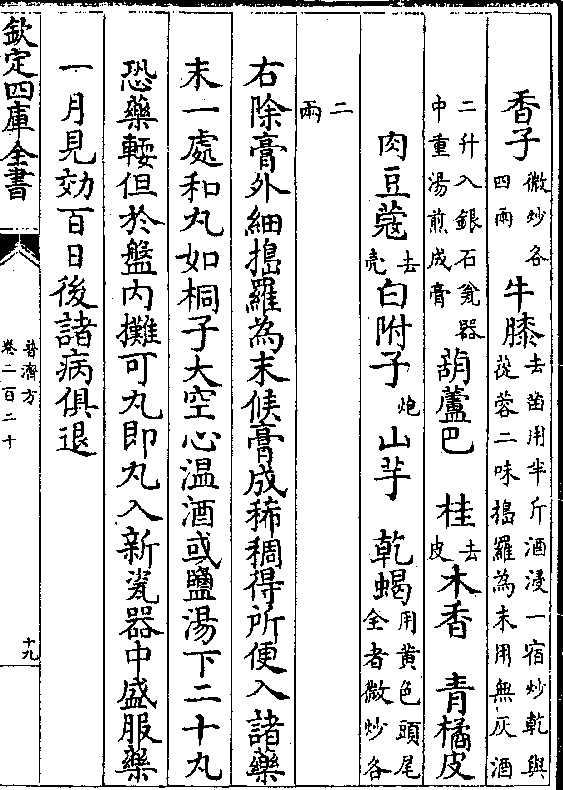 香子微炒各四兩 牛膝去苗用半斤酒浸一宿炒乾與蓯蓉二味搗羅為末用無灰酒
二升入銀石瓷器中重湯煎成膏 葫蘆巴 桂去皮 木香 青橘皮
肉豆蔻去殼 白附子炮 山芋 乾蝎用黄色頭尾全者微炒各
二兩
右除膏外細搗羅為末候膏成稀稠得所便入諸藥
末一處和丸如桐子大空心温酒或鹽湯下二十丸
恐藥䩕但於盤内攤可丸即丸入新瓷器中盛服藥
一月見効百日後諸病俱退
欽定四庫全書
普濟方
卷二百二十
十九